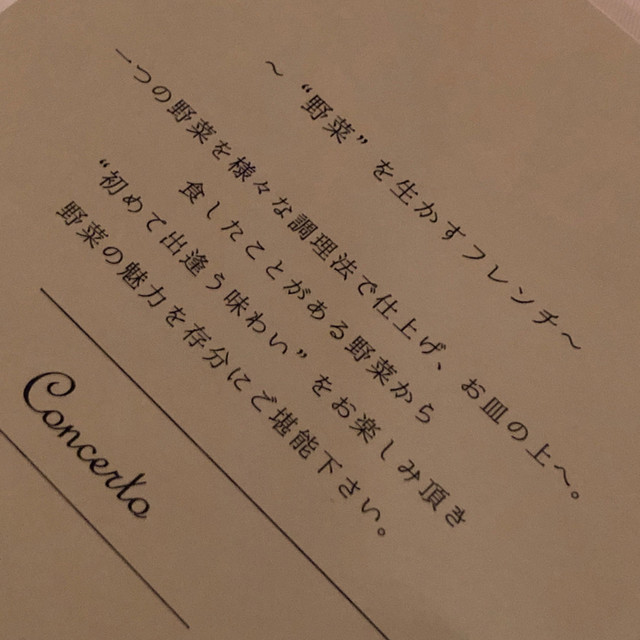 ～ “野菜” を生かすフレンチ～
一つの野菜を様々な調理法で仕上げ、お皿の上へ。
食したことがある野菜から
“初めて出逢う味わい” をお楽しみ頂き
野菜の魅力を存分にご堪能下さい。
Concerto